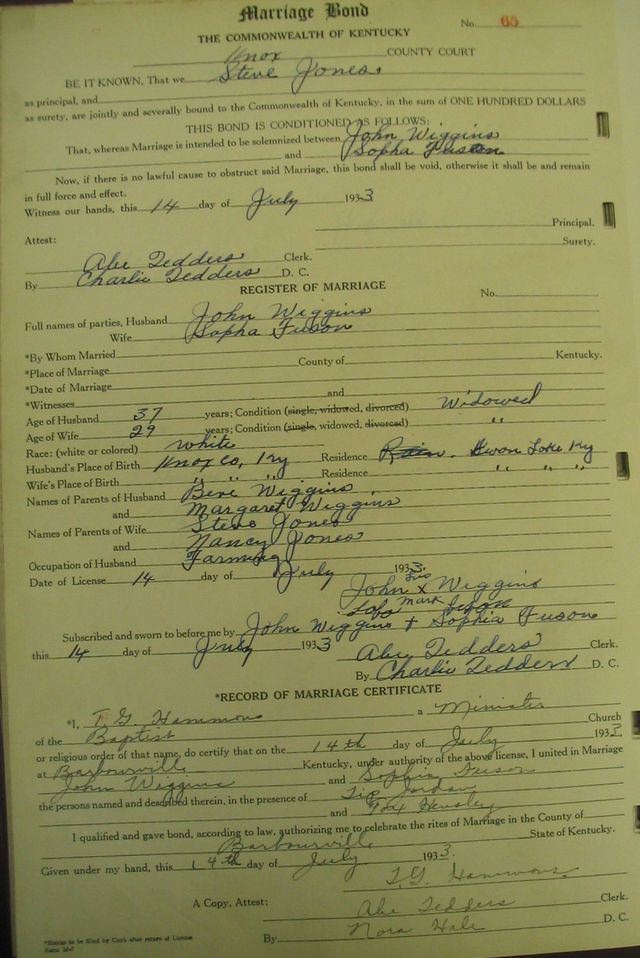 Marriage Bond
No. 65
THE COMMONWEALTH OF KENTUCKY
Knox COUNTY COURT
BE IT KNOWN, That we Steve Jones
as principal, and
as surety, are jointly and severally bound to the Commonwealth of Kentucky, in the sum of ONE HUNDRED DOLLARS
THIS BOND IS CONDITIONED AS FOLLOWS:
That, whereas Marriage is intended to be solemnized between John Wiggins
and Sopha Fuson
Now, if there is no lawful cause to obstruct said Marriage, this bond shall be void, otherwise it shall be and remain
in full force and effect.
Witness our hands, this 14 day of July 1933
Principal.
Attest: Surety.
Abe Tedders Clerk.
By Charlie Tedders D. C.
REGISTER OF MARRIAGE
No.
Full names of parties, Husband John Wiggins
Wife Sopha Fuson
*By Whom Married
*Place of Marriage County of Kentucky.
*Date of Marriage
*Witnesses and
Age of Husband 37 years; Condition (single, widowed, divorced) Widowed
Age of Wife 29 years; Condition (single, widowed, divorced) "
Race: (white or colored) white
Husband's Place of Birth Knox Co, Ky Residence Swan Lake Ky
Wife's Place of Birth " " " Residence " " "
Names of Parents of Husband Beve Wiggins
and Margaret Wiggins
Names of Parents of Wife Steve Jones
and Nancy Jones
Occupation of Husband Farming
Date of License 14 day of July 1933.
John x Wiggins
his
mark
Subscribed and sworn to before me by John Wiggins + Sophia Fuson
this 14 day of July 1933 Abe Tedders Clerk.
By Charlie Tedders D. C.
*RECORD OF MARRIAGE CERTIFICATE
*I, T. G. Hammons a Minister
of the Baptist Church
or religious order of that name, do certify that on the 14th day of July 1933.
at Barbourville Kentucky, under authority of the above license, I united in Marriage
John Wiggins and Sophia Fuson
the persons named and described therein, in the presence of Tip Jordan
and Hensley
I qualified and gave bond, according to law, authorizing me to celebrate the rites of Marriage in the County of
Barbourville State of Kentucky.
Given under my hand, this 14th day of July 1933.
T. G. Hammons
A Copy, Attest: Abe Tedders Clerk.
By Nora Hale D. C.
*Blanks to be filled by Clerk after return of License